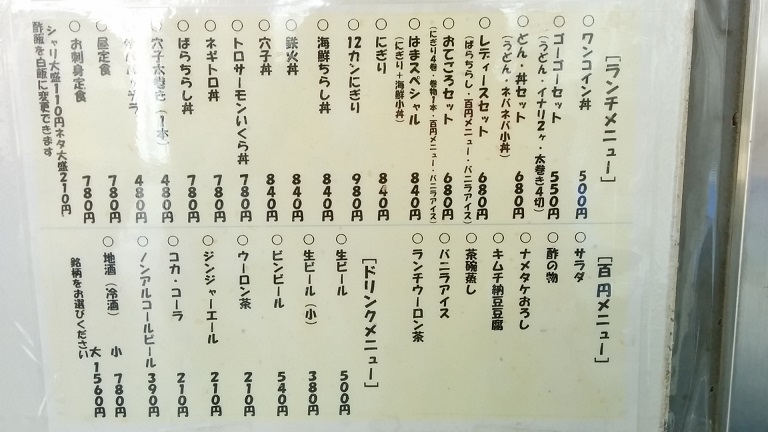 [ランチメニュー]
○ワンコイン丼 500円
○ゴーゴーセット 550円
(うどん・イナリ2ヶ・太巻き4切)
○どん・丼セット 680円
(うどん・ネバネバ小丼)
○レディースセット 680円
(ばらちらし・百円メニュー・バニラアイス)
○おてごろセット 680円
(にぎり4巻・巻物1本・百円メニュー・バニラアイス)
○はまスペシャル 840円
(にぎり+海鮮小丼)
○にぎり 840円
○12カンにぎり 980円
○海鮮ちらし丼 840円
○鉄火丼 840円
○穴子丼 840円
○トロサーモンいくら丼 780円
○ネギトロ丼 780円
○ばらちらし丼 780円
○穴子太巻き(1本) 480円
480円
○昼定食 780円
○お刺身定食 780円
シャリ大盛110円ネタ大盛210円
酢飯を白飯に変更できます
[百円メニュー]
○サラダ
○酢の物
○ナメタケおろし
○キムチ納豆豆腐
○茶碗蒸し
○バニラアイス
○ランチウーロン茶
[ドリンクメニュー]
○生ビール 500円
○生ビール(小) 380円
○ビンビール 540円
○ウーロン茶 210円
○ジンジャーエール 210円
○コカ・コーラ 210円
○ノンアルコールビール 390円
○地酒(冷酒) 小 780円
大 1560円
銘柄をお選びください